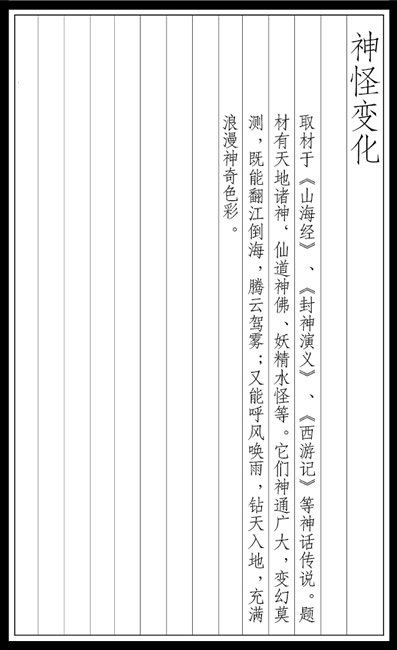 神怪变化
取材于《山海经》、《封神演义》、《西游记》等神话传说。题
材有天地诸神、仙道神佛、妖精水怪等。它们神通广大，变幻莫
测，既能翻江倒海，腾云驾雾；又能呼风唤雨，钻天入地，充满
浪漫神奇色彩。